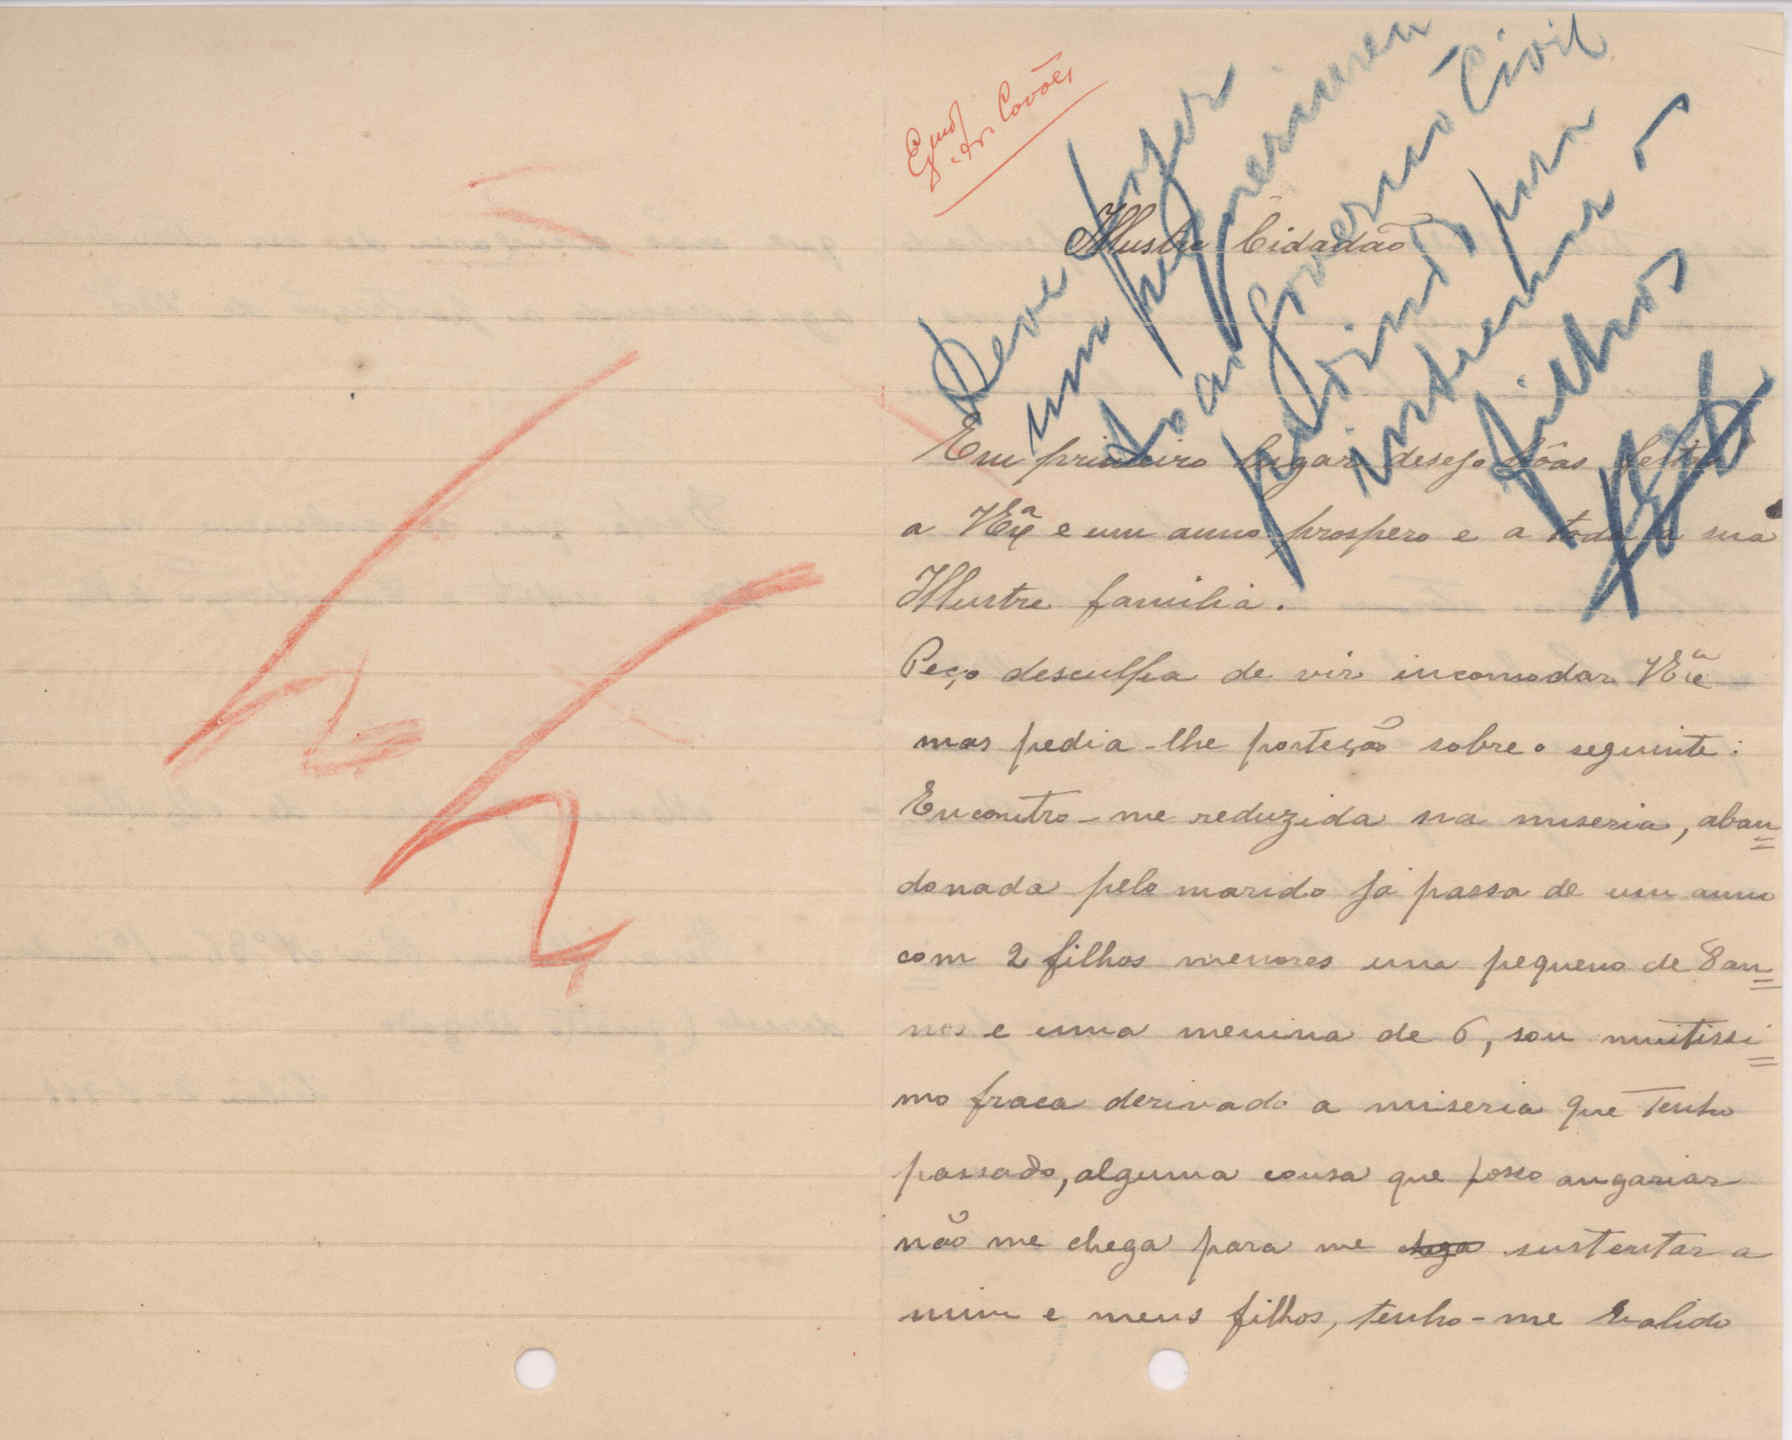 Covões
Deve fazer
um requerimen
to ao Governo Civil
pedindo para
internar os
filhos
Illustre Cidadão
Em primeiro lugar desejo bôas festas
a VExª e um anno prospero e a toda a sua
Illustre familia.
Peço desculpa de vir incomodar VExª
mas pedia-lhe porteção sobre o seguinte:
Encontro-me reduzida na miseria, aban
donada pelo marido já passa de um anno
com 2 filhos menores um pequeno de 8 an
nos e uma menina de 6, sou muitissi
mo fraca derivado a miseria que tenho
passado, alguma cousa que posso angariar
não me chega para me sustentar a
mim e meus filhos, tenho-me valido